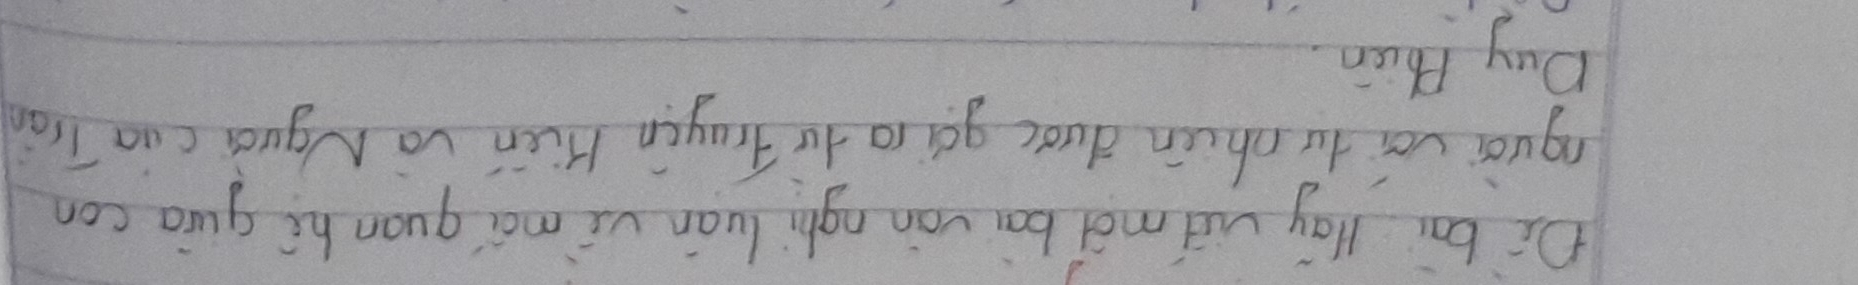 Đề bài: Hãy viết một bài văn nghị luận về mối quan hệ giữa con
người với tự nhiên được gợi ra từ truyện Kiến và Người của Trần
Duy Phiên.